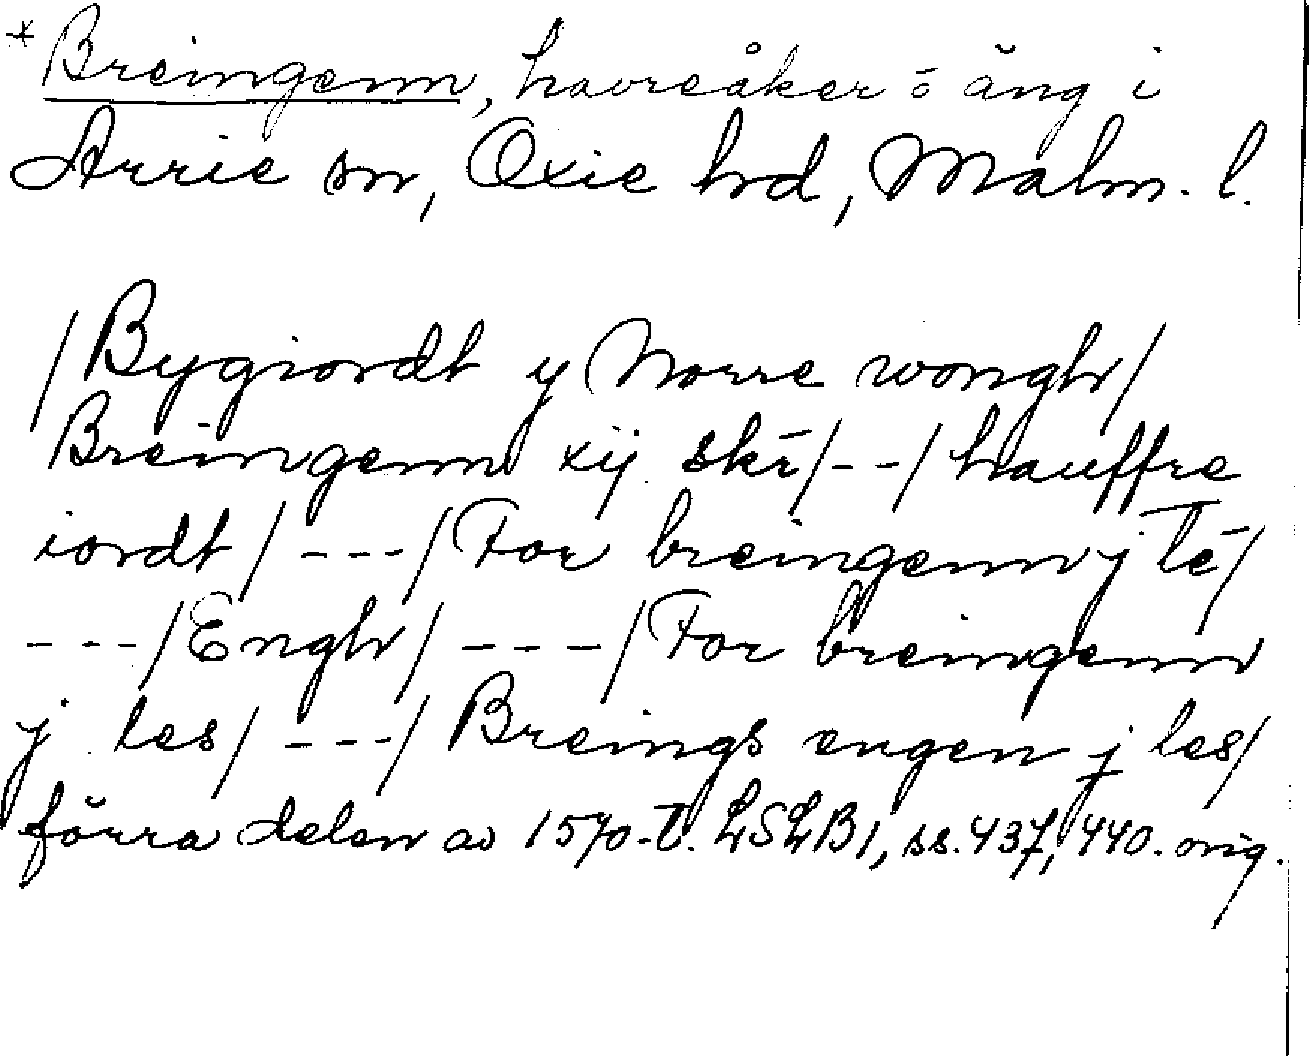 *Breingenn, havreåker o äng i
Arrie sn, Oxie hd, Malm. l.
/Bygiordt y Norre wongh/
Breingenn xij skr̄/--/hauffre
iordt/---/For breingenn j lē/
---/Engh/----/For breingenn
j les/---/Breings engen j les/
förra delen av 1570-t. LSLB1, ss. 437, 440. orig.